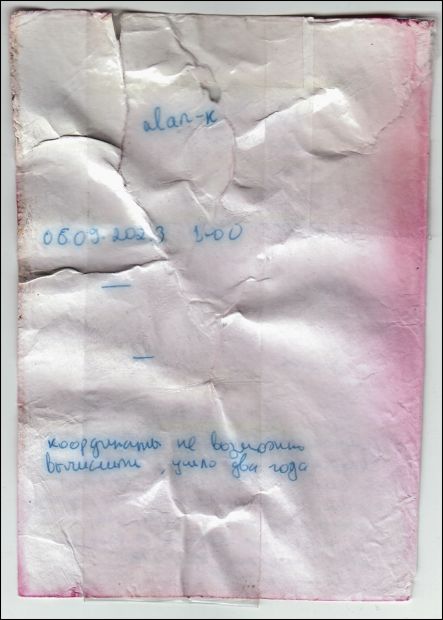 alan-к
06.09.2023 1-00
—
—
координаты не возможно
вычислить, ушло два года